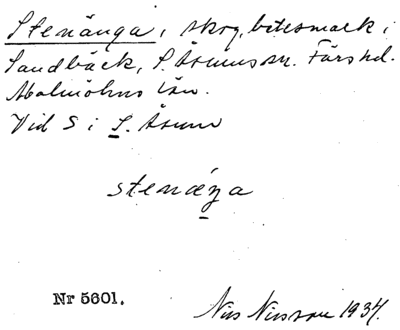 Stenänga, skog, betesmark i
Sandbäck, S. Åsums sn. Färs hd.
Malmöhus län.
Vid S i S. Åsum
stenæŋa
Nr 5601.
Nils Nilsson 1934.